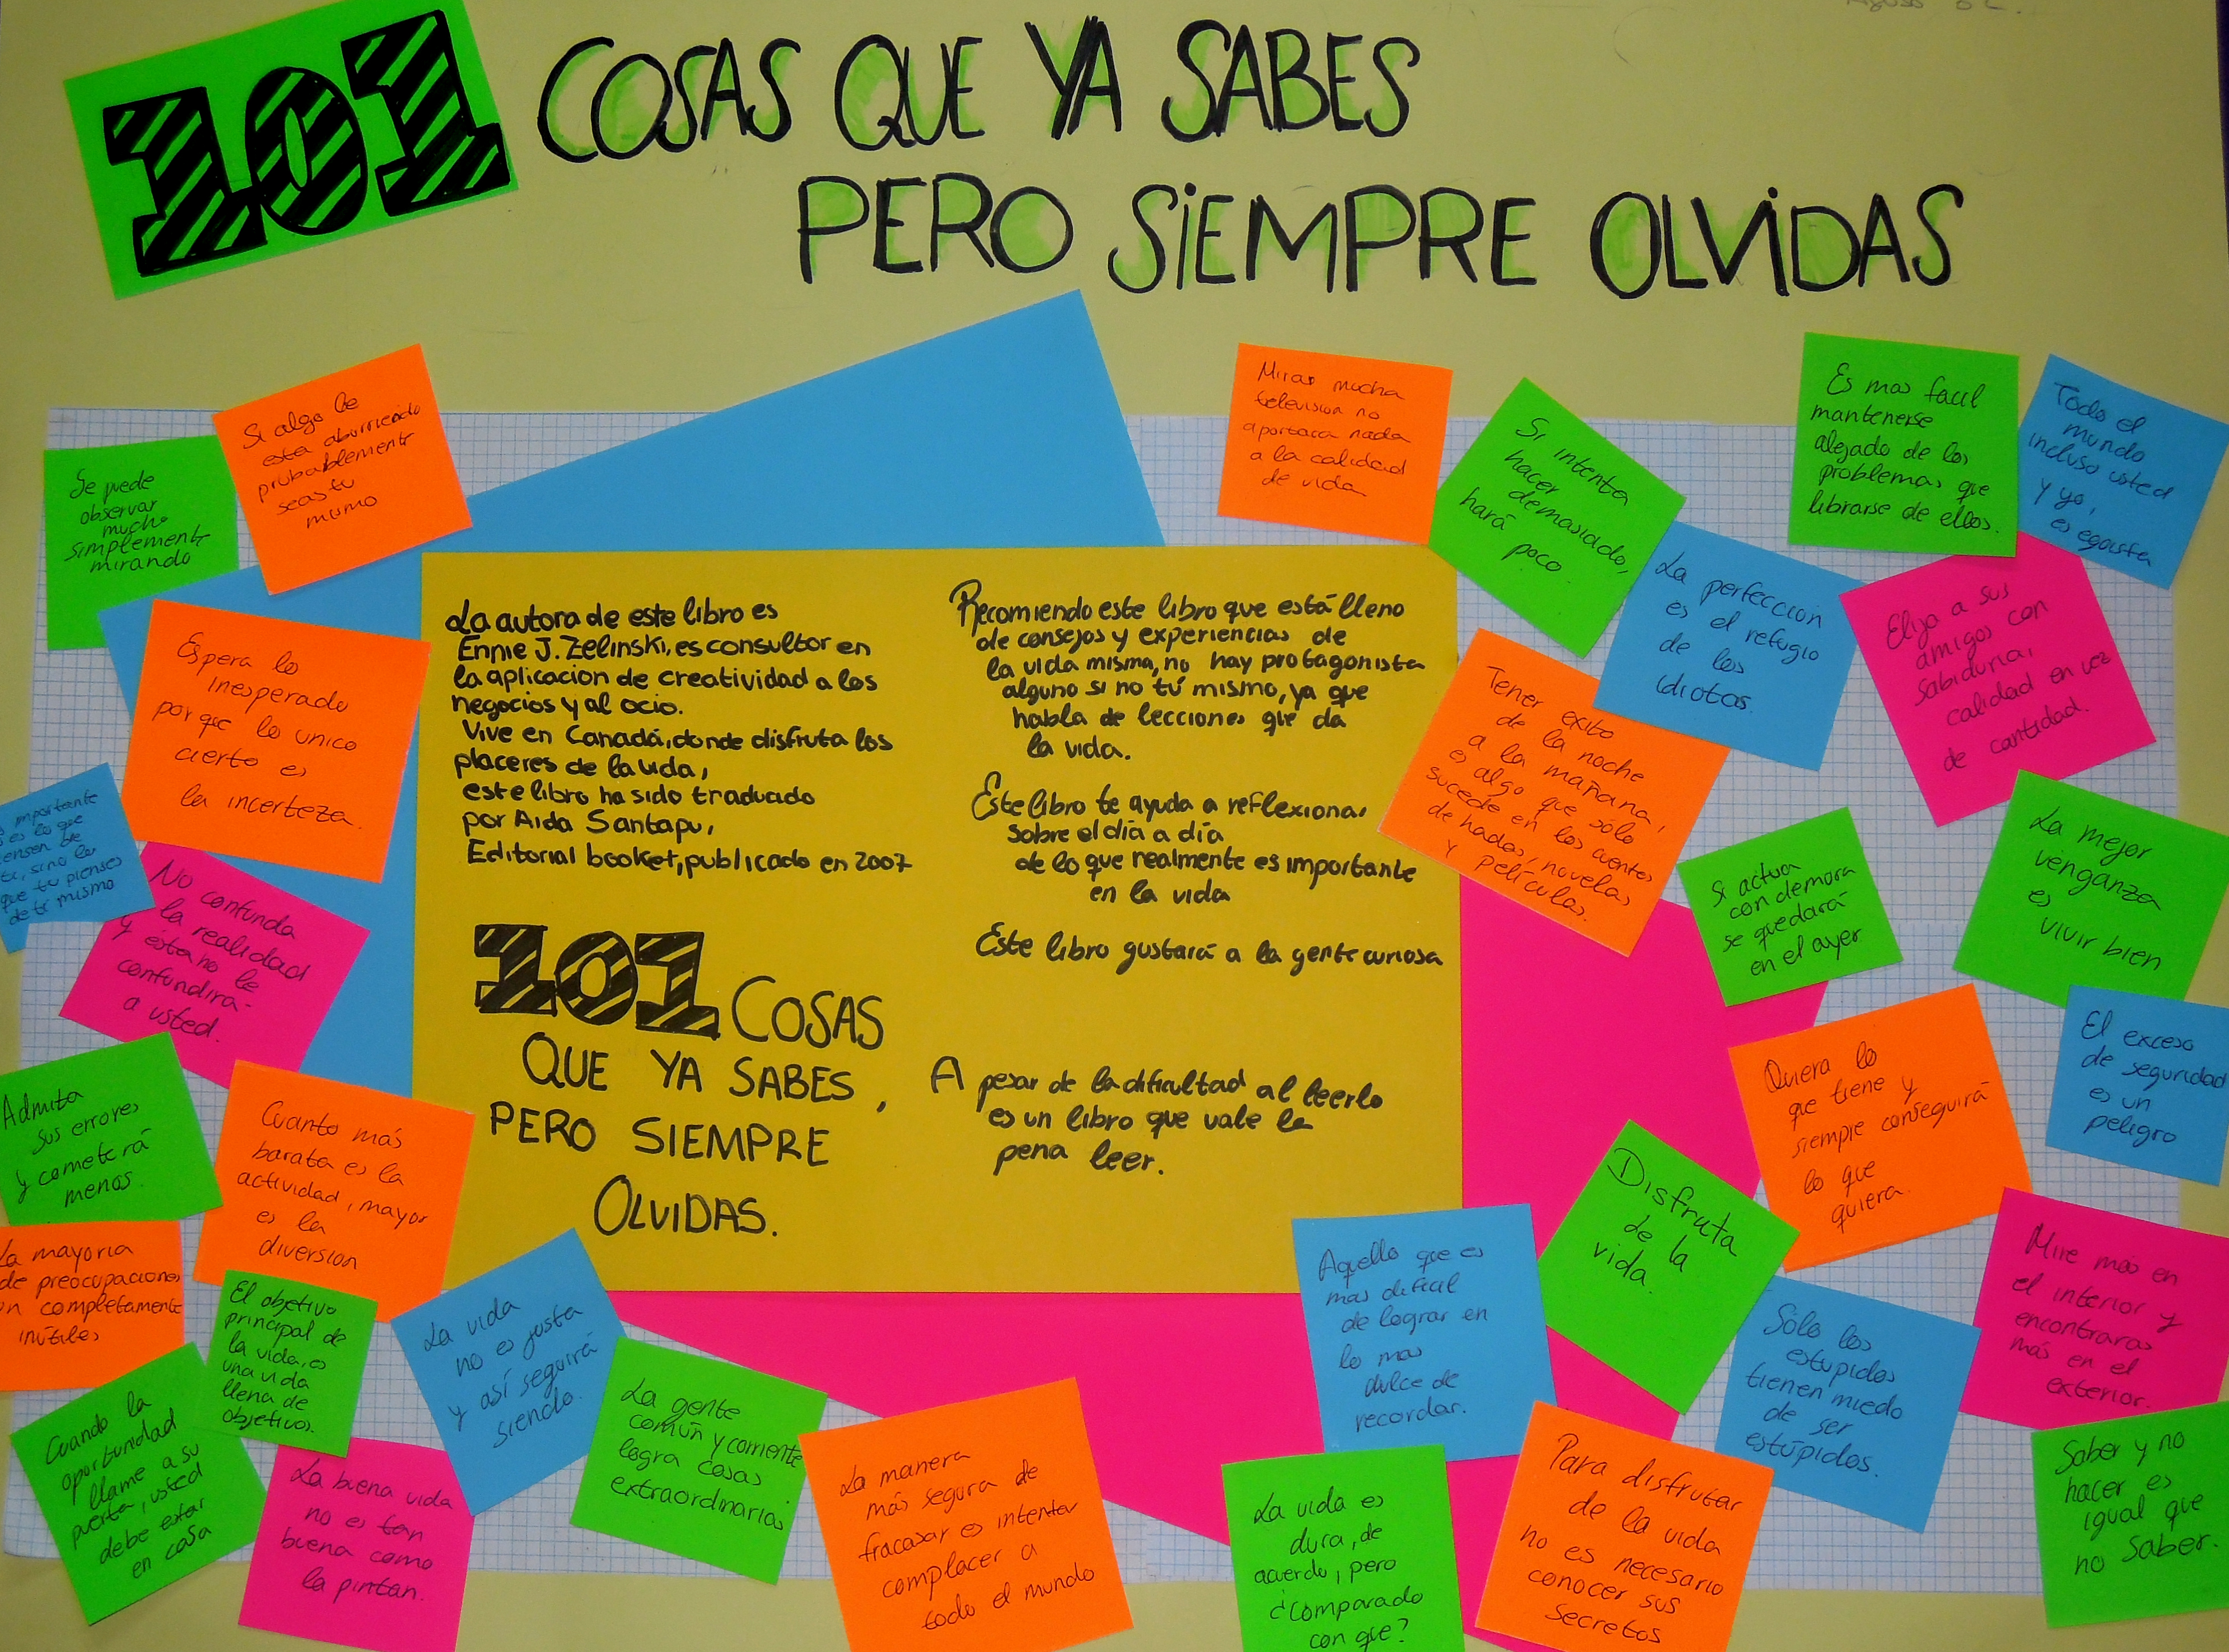 101 COSAS QUE YA SABES
PERO SIEMPRE OLVIDAS
Se puede
observar
mucho
simplemente
mirando
Si algo le
esta aburriendo
probablemente
seas tu
mismo
Espera lo
inesperado
porque lo unico
cierto es
la incerteza.
importante
es lo que
de
ti, si no lo
que tu pienses
de ti mismo
No confunda
la realidad
y ésta no le
confundirá
a usted.
Admita
sus errores
y cometerá
menos.
Cuanto más
barata es la
actividad, mayor
es la
diversion
La mayoria
de preocupaciones
completamente
inútiles
El objetivo
principal de
la vida, es
una vida
llena de
objetivos.
Cuando la
oportunidad
llame a su
puerta, usted
debe estar
en casa
La vida
no es justa
y así seguirá
siendo.
La buena vida
no es tan
buena como
la pintan.
La gente
común y corriente
logra cosas
extraordinarias
La manera
más segura de
fracasar es intentar
complacer a
todo el mundo
La autora de este libro es
Ennie J. Zelinski, es consultor en
la aplicacion de creatividad a los
negocios y al ocio.
Vive en Canadá, donde disfruta los
placeres de la vida,
este libro ha sido traducido
por Aida Santapu,
Editorial booket, publicado en 2007
101 COSAS
QUE YA SABES,
PERO SIEMPRE
OLVIDAS.
Recomiendo este libro que está lleno
de consejos y experiencias de
la vida misma, no hay protagonista
alguno si no tú mismo, ya que
habla de lecciones que da
la vida.
Este libro te ayuda a reflexionar
sobre el día a día
de lo que realmente es importante
en la vida
Este libro gustará a la gente curiosa
A pesar de la dificultad al leerlo
es un libro que vale la
pena leer.
Mirar mucha
television no
aportara nada
a la calidad
de vida
Si intenta
hacer
demasiado,
hará
poco.
Es mas facil
mantenerse
alejado de los
problemas que
librarse de ellos.
Todo el
mundo
incluso usted
y yo,
es egoista
La perfección
es el refugio
de los
idiotas.
Elija a sus
amigos con
sabiduria,
calidad en vez
de cantidad.
Tener exito
de la noche
a la mañana,
es algo que sólo
sucede en los cuentos
de hadas, novelas
y películas.
Si actua
con demora
se quedará
en el ayer
La mejor
venganza
es
vivir bien
Quiera lo
que tiene y
siempre conseguirá
lo que
quiera.
El exceso
de seguridad
es un
peligro
Disfruta
de la
vida.
Aquello que es
mas dificil
de lograr en
lo mas
dulce de
recordar.
Sólo los
estupidos
tienen miedo
de ser
estúpidos.
Mire más en
el interior y
encontraras
más en el
exterior.
La vida es
dura, de
acuerdo, pero
¿comparado
con que?
Para disfrutar
de la vida
no es necesario
conocer sus
secretos
Saber y no
hacer es
igual que
no saber.